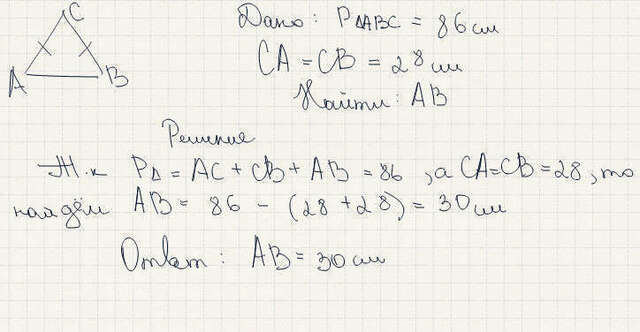 C
A
B
Дано: P△ABC = 86 см
CA = CB = 28 см
Найти: AB
Решение
Т.к P△ = AC + CB + AB = 86, а CA=CB=28, то
найдём AB = 86 - (28 + 28) = 30 см
Ответ: AB = 30 см